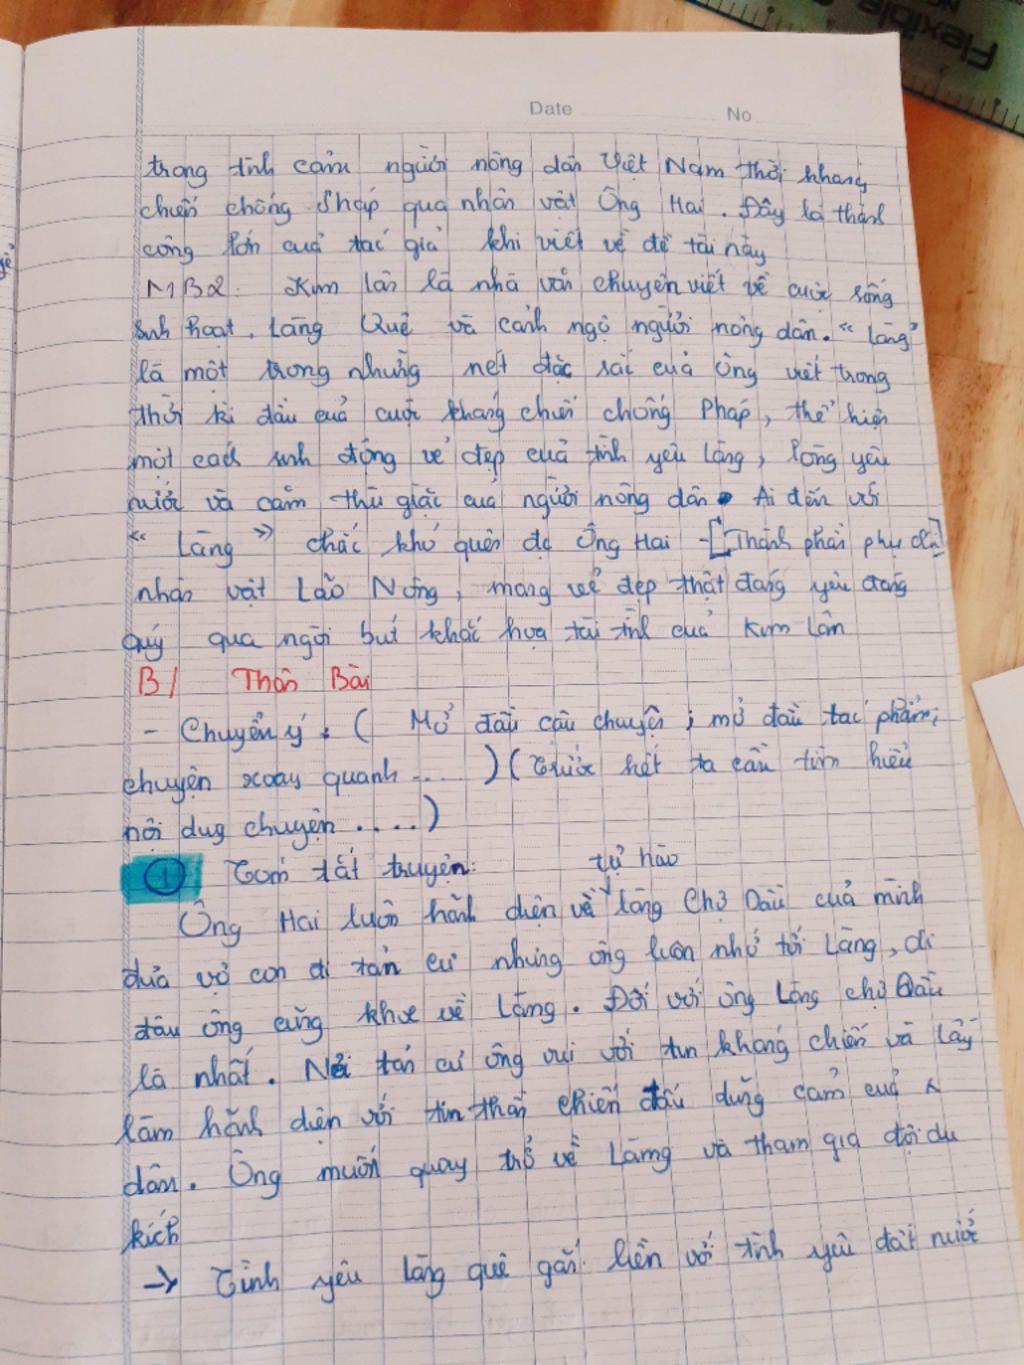 Flexible
Date No
trong tình cảm người nông dân Việt Nam thời kháng
chiến chống Pháp qua nhân vật Ông Hai. Đây là thành
công lớn của tác giả khi viết về đề tài này
MB2: Kim Lân là nhà văn chuyên viết về cuộc sống
sinh hoạt. Làng Quê và cảnh ngộ người nông dân. "Làng"
là một trong những nét đặc sắc của Ông viết trong
thời kì đầu của cuộc kháng chiến chống Pháp, thể hiện
một cách sinh động vẻ đẹp của tình yêu làng, lòng yêu
nước và căm thù giặc của người nông dân. Ai đến với
"Làng" chắc khó quên đc Ông Hai - [Thành phần phụ
nhân vật Lão Nông, mang vẻ đẹp thật đáng yêu đáng
quý qua ngòi bút khắc họa tài tình của Kim Lân
B/ Thân Bài
- Chuyển ý: ( Mở đầu câu chuyện; mở đầu tác phẩm;
chuyện xoay quanh .... ) (Trước hết ta cần tìm hiểu
nội dung chuyện ....)
1 Tóm tắt truyện: tự hào
Ông Hai luôn hãnh diện về làng Chợ Dầu của mình
đưa vợ con đi tản cư nhưng ông luôn nhớ tới Làng, đi
đâu ông cũng khoe về Làng. Đối với ông Làng chợ Dầu
là nhất. Nơi tản cư ông vui với tin kháng chiến và lấy
làm hãnh diện với tin thần chiến đấu dũng cảm của
dân. Ông muốn quay trở về Làng và tham gia đội du
kích
→ Tình yêu làng quê gắn liền với tình yêu đất nước